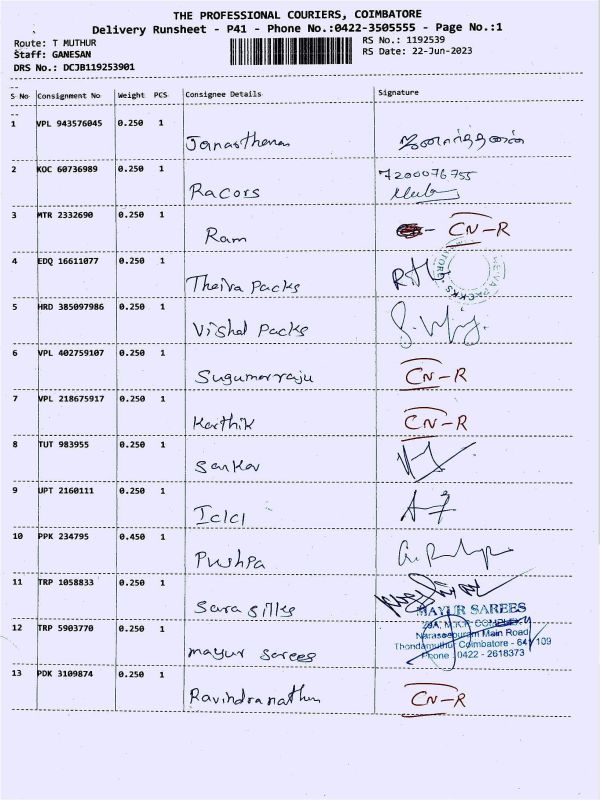 THE PROFESSIONAL COURIERS, COIMBATORE
Delivery Runsheet - P41 - Phone No.:0422-3505555 - Page No.:1
Route: T MUTHUR
RS No.: 1192539
Staff: GANESAN
RS Date: 22-Jun-2023
DRS No.: DCJB119253901
S No Consignment No Weight PCS Consignee Details Signature
1 VPL 943576045 0.250 1 Janarthanan ஜனார்த்தனன்
2 KOC 60736989 0.250 1 Racors 7200076755
3 MTR 2332690 0.250 1 Ram - CN-R
4 EDQ 16611077 0.250 1 Theiva Packs
5 HRD 385097986 0.250 1 Vishal Packs
6 VPL 402759107 0.250 1 Sugumarraju CN-R
7 VPL 218675917 0.250 1 Karthik CN-R
8 TUT 983955 0.250 1 Sankar
9 UPT 2160111 0.250 1 Icici
10 PPK 234795 0.450 1 Pushpa
11 TRP 1058833 0.250 1 Sara silks
MAYUR SAREES
12 TRP 5903770 0.250 1 mayur sarees
Narasapuram Main Road
Thondamuthur Coimbatore - 641 109
Phone : 0422 - 2618373
13 PDK 3109874 0.250 1 Ravindranathan CN-R